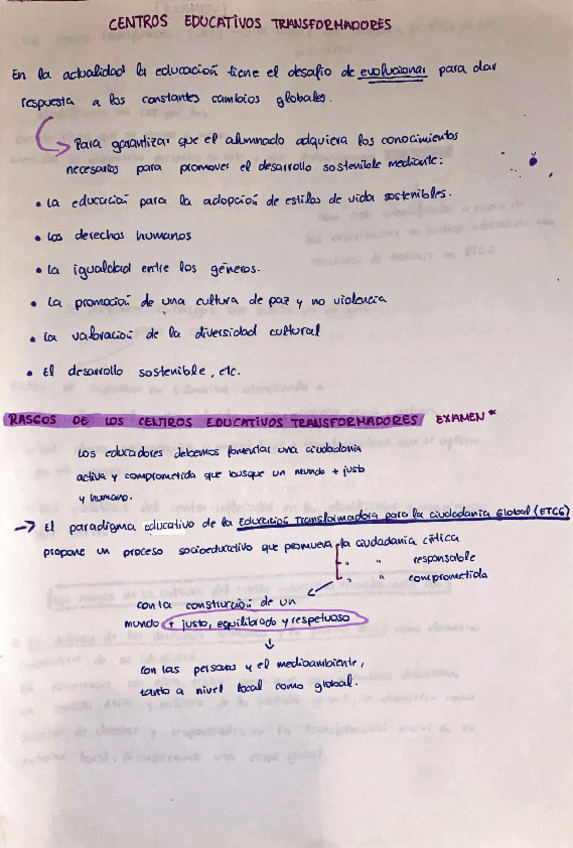 CENTROS EDUCATIVOS TRANSFORMADORES
En la actualidad la educación tiene el desafío de evolucionar para dar
respuesta a los constantes cambios globales.
Para garantizar que el alumnado adquiera los conocimientos
necesarios para promover el desarrollo sostenible mediante:
• La educación para la adopción de estilos de vida sostenibles.
• Los derechos humanos
• La igualdad entre los géneros.
• La promoción de una cultura de paz y no violencia
• La valoración de la diversidad cultural
• El desarrollo sostenible, etc.
RASGOS DE LOS CENTROS EDUCATIVOS TRANSFORMADORES EXAMEN*
Los educadores debemos fomentar una ciudadanía
activa y comprometida que busque un mundo + justo
y humano.
→ El paradigma educativo de la Educación Transformadora para la Ciudadanía Global (ETCG)
propone un proceso socioeducativo que promueva la ciudadanía crítica
" " responsable
" " comprometida
con la construcción de un
mundo + justo, equilibrado y respetuoso
con las personas y el medioambiente,
tanto a nivel local como global.